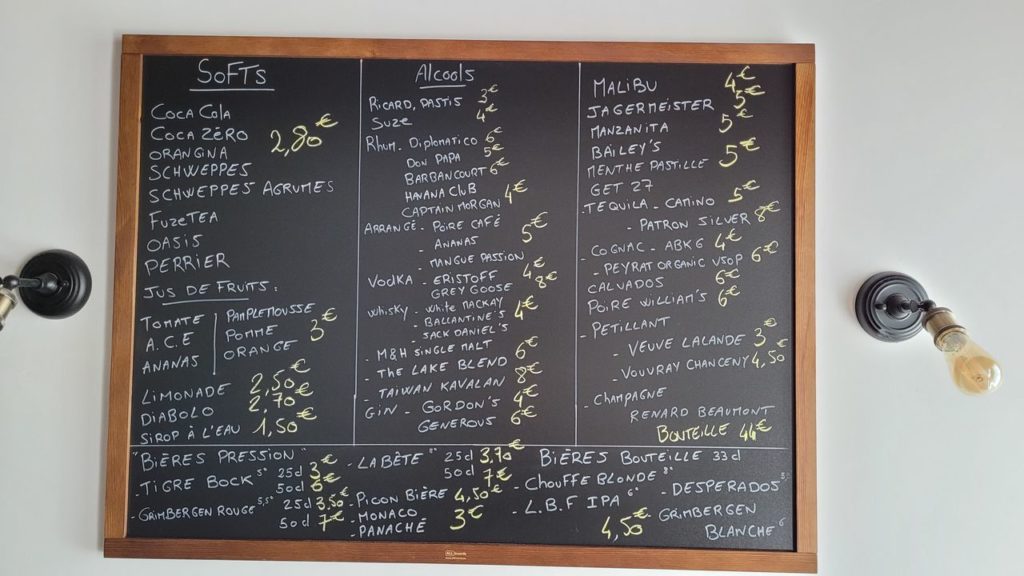 SOFTS
COCA COLA
COCA ZÉRO 2,80€
ORANGINA
SCHWEPPES
SCHWEPPES AGRUMES
FUZETEA
OASIS
PERRIER
JUS DE FRUITS :
TOMATE PAMPLEMOUSSE
A.C.E POMME 3€
ANANAS ORANGE
LIMONADE 2,50€
DIABOLO 2,70€
SIROP À L'EAU 1,50€
Alcools
RICARD, PASTIS 3€
SUZE 4€
RHUM. DIPLOMATICO 6€
DON PAPA 5€
BARBANCOURT 6€
HAVANA CLUB
CAPTAIN MORGAN 4€
ARRANGÉ - POIRE CAFÉ
- ANANAS 5€
- MANGUE PASSION
VODKA - ERISTOFF 4€
GREY GOOSE 8€
WHISKY - WHITE MACKAY
- BALLANTINE'S 4€
- JACK DANIEL'S
- M&H SINGLE MALT
- THE LAKE BLEND 6€
- TAIWAN KAVALAN 8€
GIN - GORDON'S 4€
GENEROUS 6€
MALIBU 4€
JAGERMEISTER 5€
MANZANITA
BAILEY'S 5€
MENTHE PASTILLE 5€
GET 27
- TEQUILA - CAMINO 5€
- PATRON SILVER 8€
- COGNAC - ABK6 4€
- PEYRAT ORGANIC VSOP 6€
CALVADOS 6€
POIRE WILLIAM'S 6€
- PETILLANT
- VEUVE LALANDE 3€
- VOUVRAY CHANCENY 4,50
- CHAMPAGNE
RENARD BEAUMONT
BOUTEILLE 44€
"BIÈRES PRESSION"
- TIGRE BOCK 5° 25cl 3€
50cl 6€
- GRIMBERGEN ROUGE 5,5° 25cl 3,50€
50cl 7€
- LA BÊTE 8° 25cl 3,70€
50cl 7€
- PICON BIÈRE 4,50€
- MONACO
- PANACHÉ 3€
BIÈRES BOUTEILLE 33cl
- CHOUFFE BLONDE 8°
- L.B.F IPA 6°
- DESPERADOS
4,50€
- GRIMBERGEN
BLANCHE 6